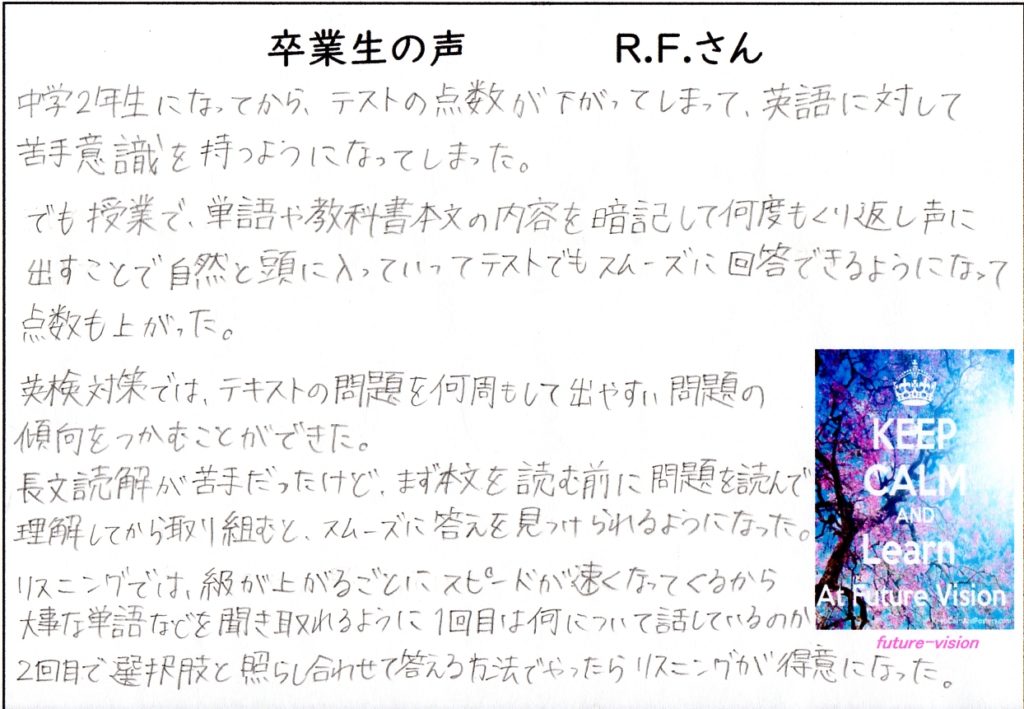 卒業生の声 R.F.さん
中学2年生になってから、テストの点数が下がってしまって、英語に対して
苦手意識を持つようになってしまった。
でも授業で、単語や教科書本文の内容を暗記して何度もくり返し声に
出すことで自然と頭に入っていってテストでもスムーズに回答できるようになって
点数も上がった。
英検対策では、テキストの問題を何周もして出やすい問題の
傾向をつかむことができた。
長文読解が苦手だったけど、まず本文を読む前に問題を読んで
理解してから取り組むと、スムーズに答えを見つけられるようになった。
リスニングでは、級が上がるごとにスピードが速くなってくるから
大事な単語などを聞き取れるように1回目は何について話しているのか
2回目で選択肢と照らし合わせて答える方法でやったらリスニングが得意になった。
KEEP
CALM
AND
Learn
At Future Vision
future-vision